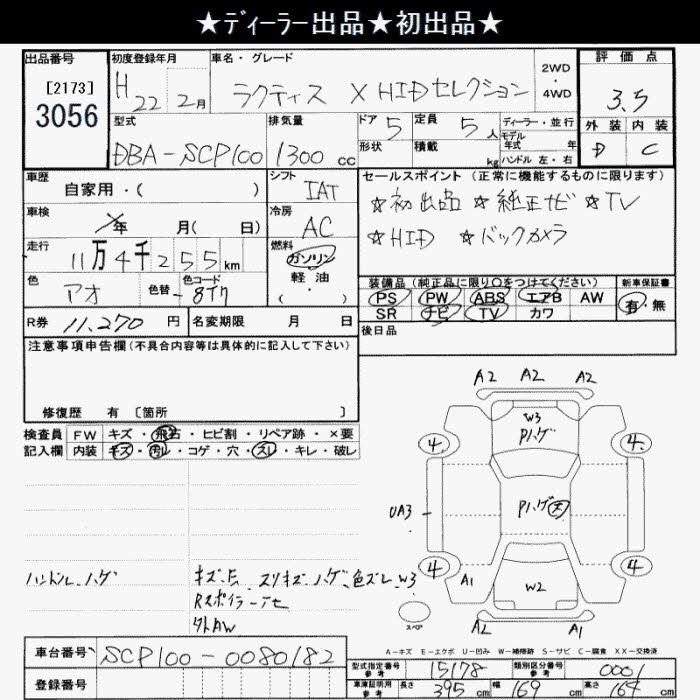 ★ディーラー出品★初出品★
出品番号 初度登録年月 車名・グレード 2WD・4WD 評価点
[2173] 3056 H22 2月 ラクティス X HIDセレクション 3.5
外装 内装
D C
型式 排気量 ドア 5 定員 5人 ディーラー・並行
DBA-SCP100 1300cc 形状 積載 kg モデル年式 年
ハンドル 左・右
車歴 自家用・( ) シフト IAT
車検 年 月( 日) 冷房 AC
走行 11万4千255km 燃料 ガソリン 軽油 ( ・ )
色 アオ 色替 色コード 8T7
R券 11,270円 名変期限 月 日
セールスポイント(正常に機能するものに限ります)
☆初出品 ☆純正ナビ ☆TV
☆HID ☆バックカメラ
装備品(純正品に限り○をつけてください) 新車保証書
PS PW ABS エアB AW 有・無
SR ナビ TV カワ
後日品
注意事項申告欄(不具合内容等は具体的に記入して下さい)
修復歴 有 〔箇所 〕
検査員 FW キズ・飛石・ヒビ割・リペア跡・×要
記入欄 内装 キズ・汚レ・コゲ・穴・スレ・キレ・破レ
A2 A2 A2
W3
Pハゲ
4 4
Pハゲ 大
UA3
4 4
A1 W2
スペア A2 A1
ハンドルハゲ
スリキズ ハゲ 色ズレ W3
Rスポイラー
外AW
A-キズ E-エクボ U-凹み W-補修跡 S-サビ C-腐食 XX-交換済
車台番号 SCP100-0080182
登録番号
型式指定番号 参考 15178 類別区分番号 参考 0001
車庫証明用 参考 長さ 395cm 幅 169cm 高さ 164cm